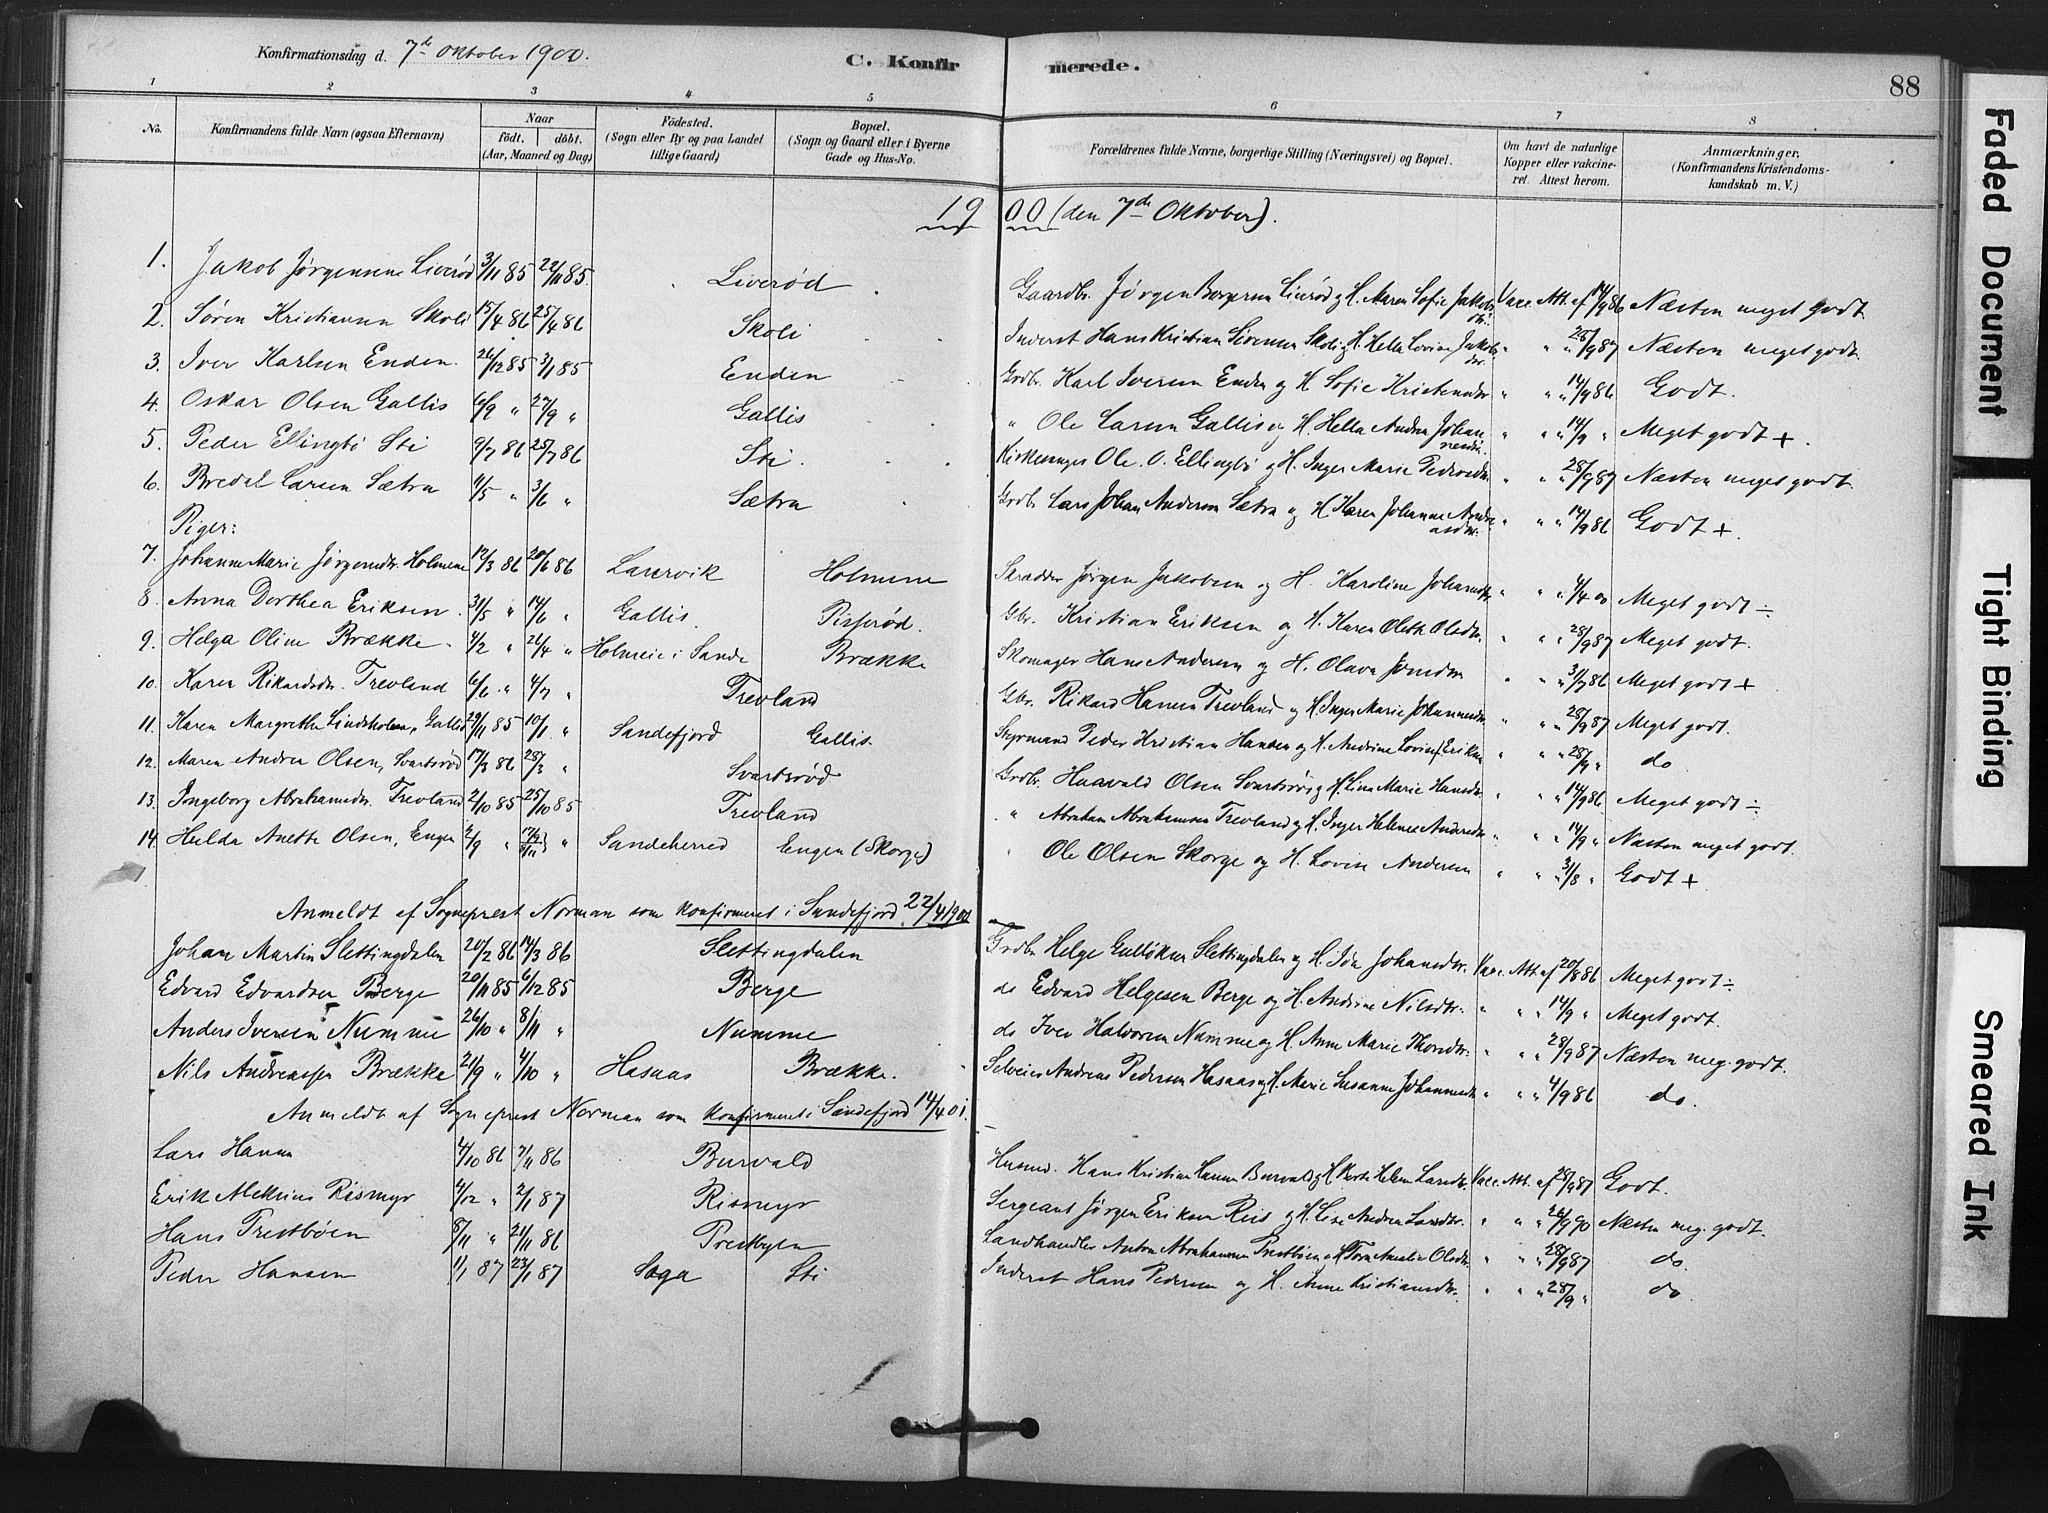 Konfirmationsdag d. 7de Oktober 1900. C. Konfirmerede. 88
1 2 3 4 5 6 7 8
No. Konfirmandens fulde Navn (ogsaa Efternavn) Naar født. døbt. (Aar, Maaned og Dag) Födested. (Sogn eller By og paa Landet tillige Gaard) Bopæl. (Sogn og Gaard eller i Byerne Gade og Hus-No. Forældrenes fulde Navne, borgerlige Stilling (Næringsvei) og Bopæl. Om havt de naturlige Kopper eller vakcineret. Attest herom. Anmærkninger. (Konfirmandens Kristendomskundskab m. V.)
1900 (den 7de Oktober).
1. Jakob Jørgensen Liverød 3/11 85 22/11 85. Liverød Gaardbr. Jørgen Liverød og H. Maren Sofie Jakobsdtr. Vacc. Att. af 14/9 86 Næsten meget godt
2. Søren Kristiansen Skoli 15/4 86 25/4 86 Skoli Inderst Hans Kristian Sørensen Skoli og H. Hella Lovise Jakobsdtr. " " " 28/9 87 Næsten meget godt.
3. Iver Karlsen Enden. 26/12 85 3/1 85 Enden Grdbr. Karl Iversen Enden og H. Sofie Kristensdtr " " " 14/9 86 Godt.
4. Oskar Olsen Gallis 6/9 " 27/9 " Gallis " Ole Larsen Gallis og H. Hella Andrea Johannesdtr. " " " 14/9 " Meget godt +.
5. Peder Ellingbö Sti 9/7 86 25/7 86 Sti. Kirkesanger Ole O. Ellingbö og H. Inger Marie Pedersdtr. " " " 28/9 87 Næsten meget godt.
6. Bredal Larsen Sætra 4/5 " 3/6 " Sætra Grdbr. Lars Johan Andersen Sætra og H. Karen Johanne Andreasdtr. " " " 14/9 86 Godt +.
Piger:
7. Johanne Marie Jørgensdtr. Holmene 12/3 86 20/6 86 Laurvik Holmene Skrædder Jørgen Jakobsen og H. Karoline Johannesdtr " " " 4/4 00 Meget godt ÷
8. Anna Dorthea Eriksen. 31/5 " 14/6 " Gallis. Pisserød. Gbr. Kristian Eriksen og H. Karen Oleth Olsdtr. " " " 28/9 87 Meget godt.
9. Helga Oline Brække. 4/2 " 26/4 " Holmeie i Sande Brække Skomager Hans Andersen og H. Olava Jonsdtr " " " 31/7 86 Meget godt +
10. Karen Rikardsdr. Trevland 6/6 " 4/7 " Trevland Gbr. Rikard Hansen Trevland og H. Inger Marie Johannesdtr " " " 28/9 87 Meget godt.
11. Karen Margrethe Lindsholm, Gallis 29/11 85 10/1 " Sandefjord Gallis. Styrmand Peder Kristian Hansen og H. Andrine Lovise Eriksen " " " 28/9 " do
12. Maren Andrea Olsen, Svartsrød 17/3 86 28/3 " Svartsrød Grdbr. Olsen Svartsrød og H. Lina Marie Hansdtr. " " " 14/9 86 Meget godt ÷
13. Ingeborg Abrahamsdr. Trevland 2/10 85 25/10 85 Trevland " Abraham Abrahamsen Trevland og H. Inger Helene Andersdtr " " " 14/9 " Næsten meget godt.
14. Hulda Anette Olsen, Engen 2/9 " 17/9 8/11 } " Sandeherred Engen (Skorge) " Ole Olsen Skorge og H. Lovise Andersen " " " 31/8 " Godt +
Anmeldt af Sogneprest Norman som konfirmeret i Sandefjord. 22/4 1900
Johan Martin Slettingdalen 20/2 86 14/3 86 Slettingdalen Grdbr Helge Slettingdalen og H. Ida Johansdtr. Vacc. Att. af 20/8 86 Meget godt ÷
Edvard Edvardsen Berge 20/11 85 6/12 85 Berge do Edvard Helgesen Berge og H. Andrine Nilsdtr. " " " 14/9 " Meget godt.
Anders Iversen Numme 26/10 " 8/11 " Numme do Iver Halvorsen Numme og H. Anne Marie Thorsdtr. " " " 28/9 87 Næsten meg. godt.
Nils Andreassen Brække 21/9 " 4/10 " Hasaas Brække. Selveier Andreas Pedersen Hasaas og H. Marie Susanne Johannesdtr " " " 4/9 86 do.
Anmeldt af Sogneprest Norman som konfirmeret i Sandefjord 14/4 01.
Lars Hansen 4/10 86 7/11 86 Burvald Husmd. Hans Kristian Hansen Burvald og H. Helene Larsdtr. Vacc. Att. af 28/9 87 Godt.
Erik Aleksius Rismyr 4/12 " 2/1 87 Rismyr Sergeant Jørgen Eriksen Reis og H. Lise Andrea Larsdtr. " " " 26/9 90 Næsten meg. godt.
Hans Prestbøen 8/11 " 21/11 86 Prestbyen Landhandler Anton Abrahamsen Prestbøen og H. Thora Amalie Olsdtr " " " 28/9 87 do.
Peder Hansen 1/1 87 23/1 87 Soga Sti Inderst Hans Pedersen og H. Anne Kristiansdtr. " " " 28/9 " do.
Faded Document
Tight Binding
Smeared Ink